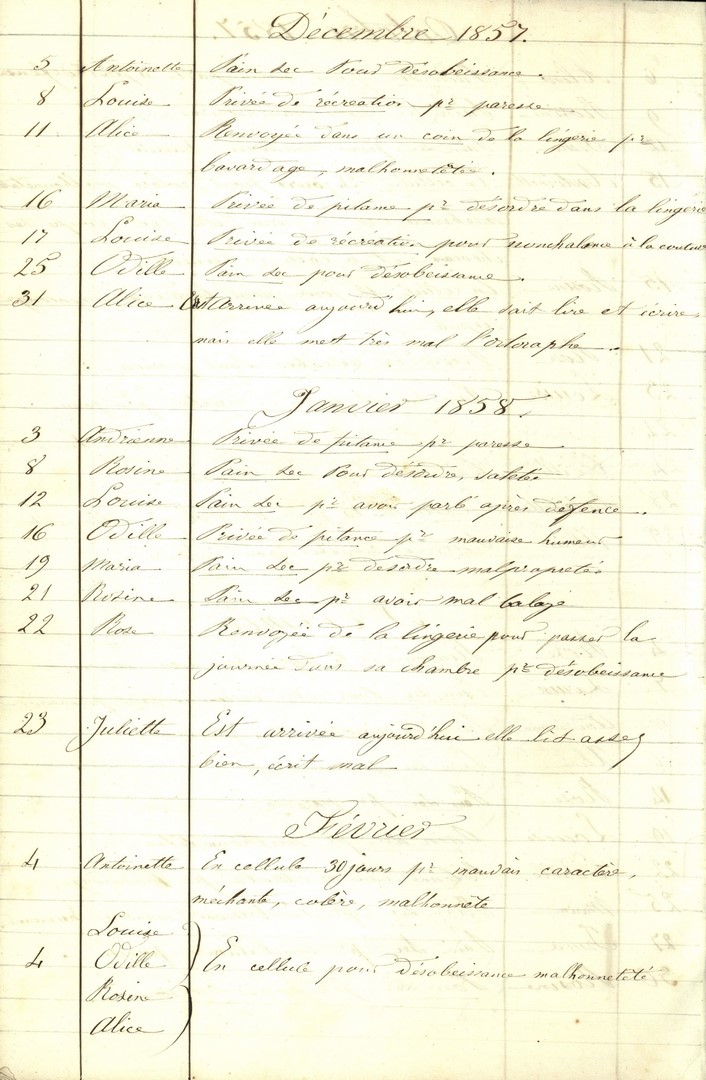 Décembre 1857.
5 Antoinette Pain sec Pour désobeissance.
8 Louise Privée de récreation pr paresse
11 Alice Renvoyé dans un coin de la lingerie pr
bavardage, malhonnetetée.
16 Maria Privée de pitance pr désordre dans la lingerie
17 Louise Privée de récréation pour nonchalance à la couture
25 Odille Pain sec pour désobeissance.
31 Alice Est Arrivée aujourd'hui, elle sait lire et écrire,
mais elle met très mal l'ortoraphe.
Janvier 1858.
3 Andrienne Privée de pitance pr paresse
8 Rosine Pain sec Pour désordre, saletée
12 Louise Pain sec pr avoir parlé après défence.
16 Odille Privée de pitance pr mauvaise humeur
19 Maria Pain sec pr desordre malpropretée
21 Rosine Pain sec pr avoir mal balayé
22 Rose Renvoyée de la lingerie pour passer la
journée dans sa chambre pr désobeissance
23 Juliette Est arrivée aujourd'hui elle lit assez
bien, écrit mal
Février
4 Antoinette En cellule 30 jours pr mauvais caractère,
méchante, colère, malhonnête
Louise
4 Odille En cellule pour désobeissance malhonneteté
Rosine
Alice